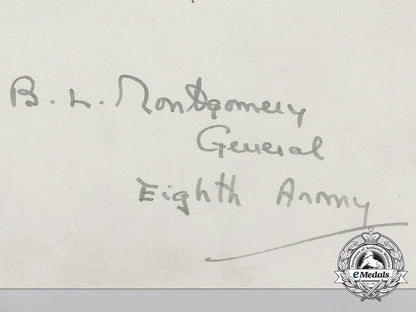 B. L. Montgomery
General
Eighth Army
eMedals